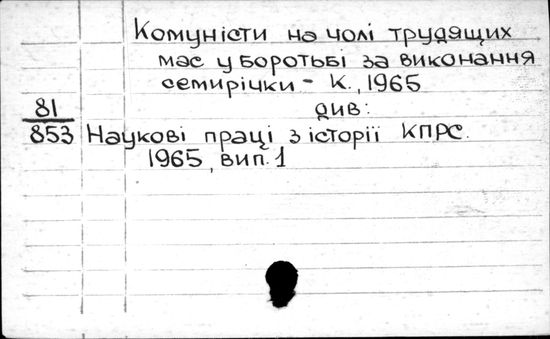 Комуністи на чолі трудящих
мас у боротьбі за виконання
семирічки - К., 1965
див:
81
853 Наукові праці з історії КПРС.
1965, вип. 1